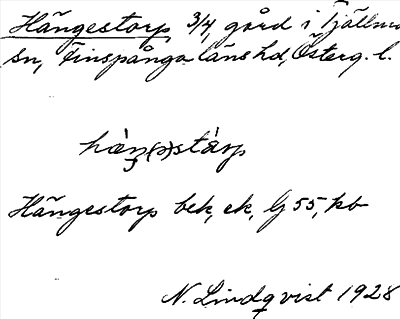 Hängestorp, 3/4, gård i Tjällmo
sn, Finspånga läns hd, Österg. l.
hàŋ(ə)stárp
Hängestorp bek, ek, Gj 55, kb
N. Lindqvist 1928